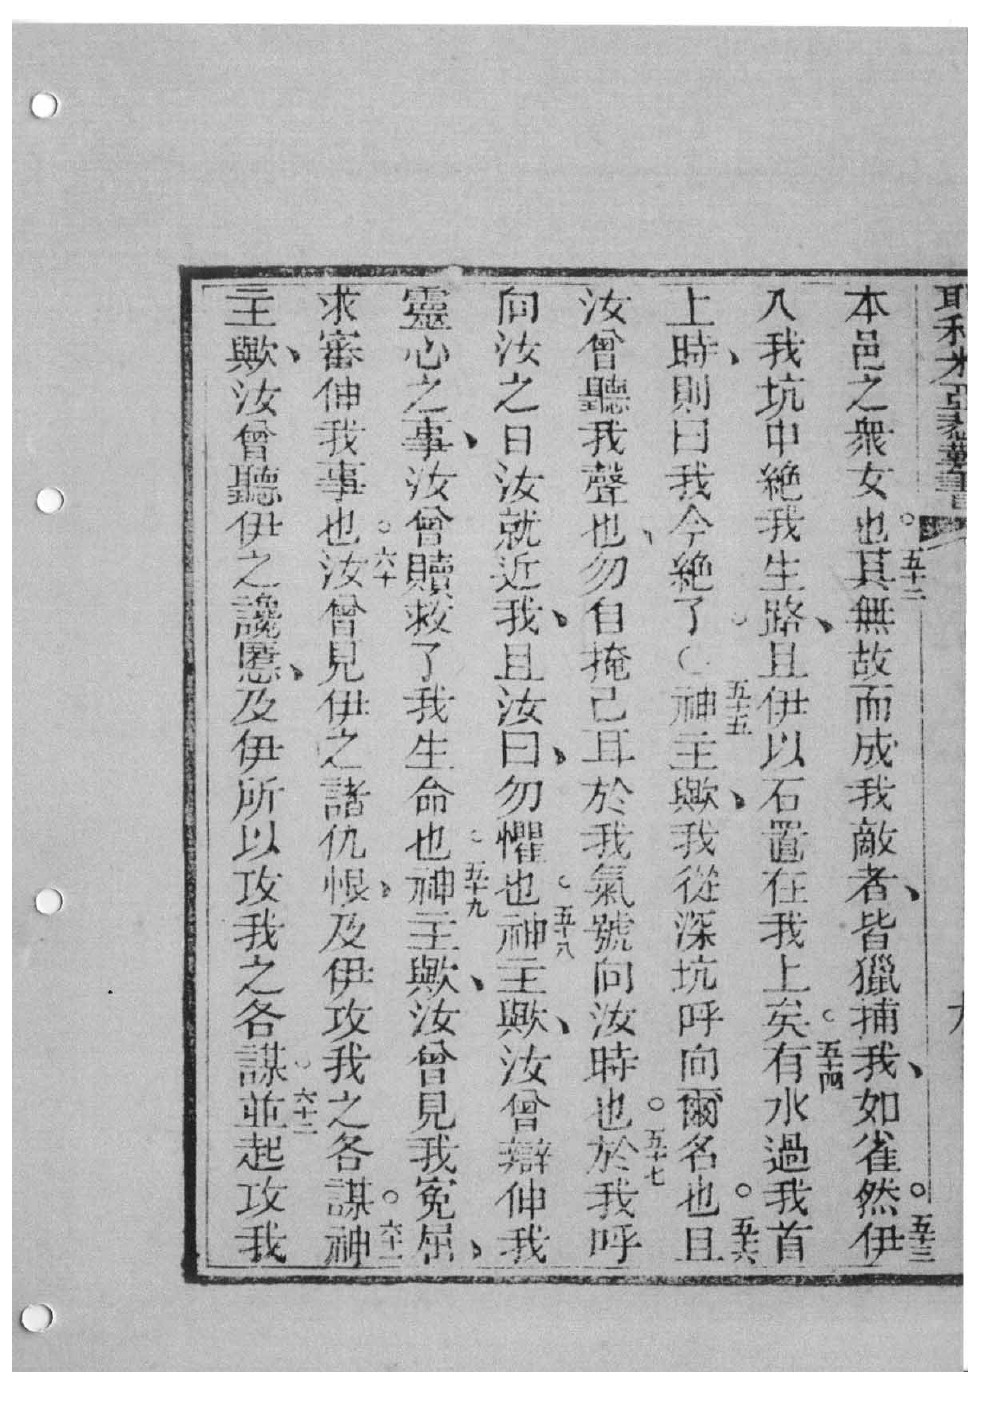 耶利米亞悲嘆書
本邑之衆女也。五十二其無故而成我敵者、皆獵捕我、如雀然。五十三伊
入我坑中絶我生路、且伊以石置在我上矣。五十四有水過我首
上時、則曰我今絶了。○五十五神主歟、我從深坑呼向爾名也。五十六且
汝曾聽我聲也、勿自掩己耳於我氣號向汝時也。五十七於我呼
向汝之日汝就近我、且汝曰、勿懼也。五十八神主歟、汝曾辯伸我
靈心之事、汝曾贖救了我生命也。五十九神主歟、汝曾見我冤屈、
求審伸我事也。六十汝曾見伊之諸仇恨、及伊攻我之各謀。六十一神
主歟、汝曾聽伊之讒慝、及伊所以攻我之各謀。六十二並起攻我